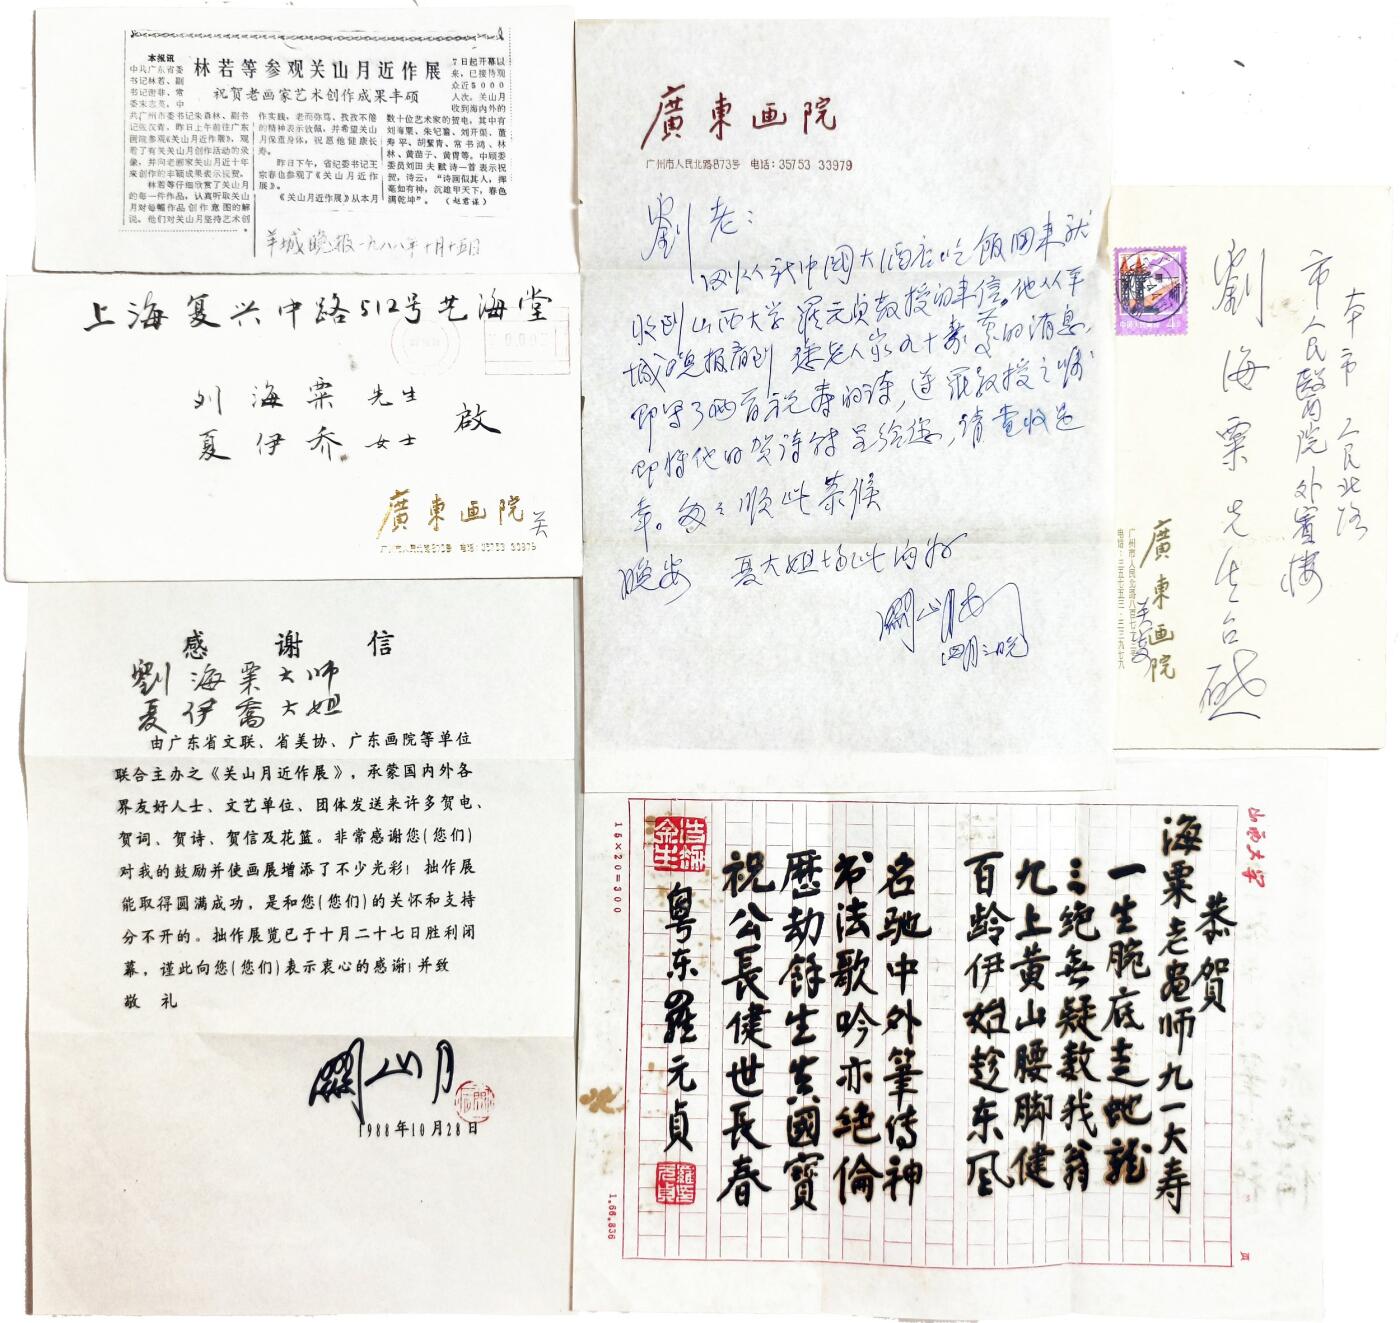 本报讯
中共广东省委
书记林若、副
书记谢非、常
委宋志英,中
共广州市委书记朱森林、副书
记张汉青,昨日上午前往广东
画院参观《关山月近作展》,观
看了有关关山月创作活动的录
像,并向老画家关山月近十年
来创作的丰硕成果表示祝贺。
林若等仔细欣赏了关山月
的每一件作品,认真听取关山
月对每幅作品创作意图的解
说。他们对关山月坚持艺术创
林若等参观关山月近作展
祝贺老画家艺术创作成果丰硕
作实践,老而弥笃、孜孜不倦
的精神表示钦佩,并希望关山
月保重身体,祝愿他健康长
寿。
昨日下午,省纪委书记王
宗春也参观了《关山月近作
展》。
《关山月近作展》从本月
7日起开幕以
来,已接待观
众近5000
人次。关山月
收到海内外的
数十位艺术家的贺电,其中有
刘海粟、朱屺瞻、刘开渠、董
寿平、胡絜青、常书鸿、林
林、黄苗子、黄胄等。中顾委
委员刘田夫赋诗一首表示祝
贺,诗云:“诗画似其人,挥
毫如有神,沉雄甲天下,春色
满乾坤”。(赵君谋)
羊城晚报一九八八年十月十五日
上海复兴中路512号艺海堂
刘海粟先生
夏伊乔女士
启
廣東画院 关
广州市人民北路873号 电话:35753 33979
感谢信
劉海粟大师
夏伊喬大姐
由广东省文联、省美协、广东画院等单位
联合主办之《关山月近作展》,承蒙国内外各
界友好人士、文艺单位、团体发送来许多贺电、
贺词、贺诗、贺信及花篮。非常感谢您(您们)
对我的鼓励并使画展增添了不少光彩!拙作展
能取得圆满成功,是和您(您们)的关怀和支持
分不开的。拙作展览已于十月二十七日胜利闭
幕,谨此向您(您们)表示衷心的感谢!并致
敬礼
關山月
1988年10月28日
廣東画院
广州市人民北路873号 电话:35753 33979
劉老:
中國大酒店吃飯回来就
收到山西大学羅元贞教授的来信。他从羊
城晚报看到您老人家九十寿慶的消息,
即写了两首祝寿的诗,遵羅教授之嘱
即将他的贺诗转呈给您,请查收是
幸。匆匆顺此恭候
晚安 夏大姐均此问好
關山月
四月二晚
本市人民北路
市人民醫院外賓楼
劉海粟先生台啟
廣東画院
关
广州市人民北路八七三号
电话:三五七五三·三三九七九
山西大学
恭贺
海粟老畫师九一大寿
一生腕底走蛇龍
三绝無疑数我翁
九上黄山腰脚健
百龄伊始趁东风
名馳中外筆傳神
书法歌吟亦绝倫
歷劫餘生生國寶
祝公長健世長春
粤东羅元貞
羅元貞
15×20=300
1.66.836
页